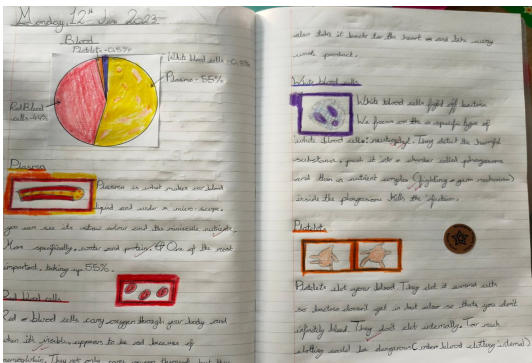 Monday, 12th June 2023
Blood
Platelets - 0.5%
White blood cells - 0.5%
Plasma - 55%
Red Blood
cells - 44%
Plasma
Plasma is what makes our blood
liquid and under a micro-scope,
you can see its yellow colour and the miniscule nutrients.
More specifically, water and protein. One of the most
important, taking up 55%.
Red blood cells
Red blood cells carry oxygen through your body and
when its visible, appears to be red because of
haemoglobin. They not only carry oxygen through but they
also take it back to the heart and take away
waste product.
White blood cells
White blood cells fight off bacteria
We focus on the specific type of
white blood cells: They detect the harmful
substance, push it into a chamber called phagosome
and then a nutrient complex (fighting mechanism)
inside the phagosome kills the infection.
Platelets
Platelets clot your blood. They clot it around cuts
so bacteria doesn't get in but also so that you don't
infinitely bleed. They don't clot internally. Too much
clotting would be dangerous